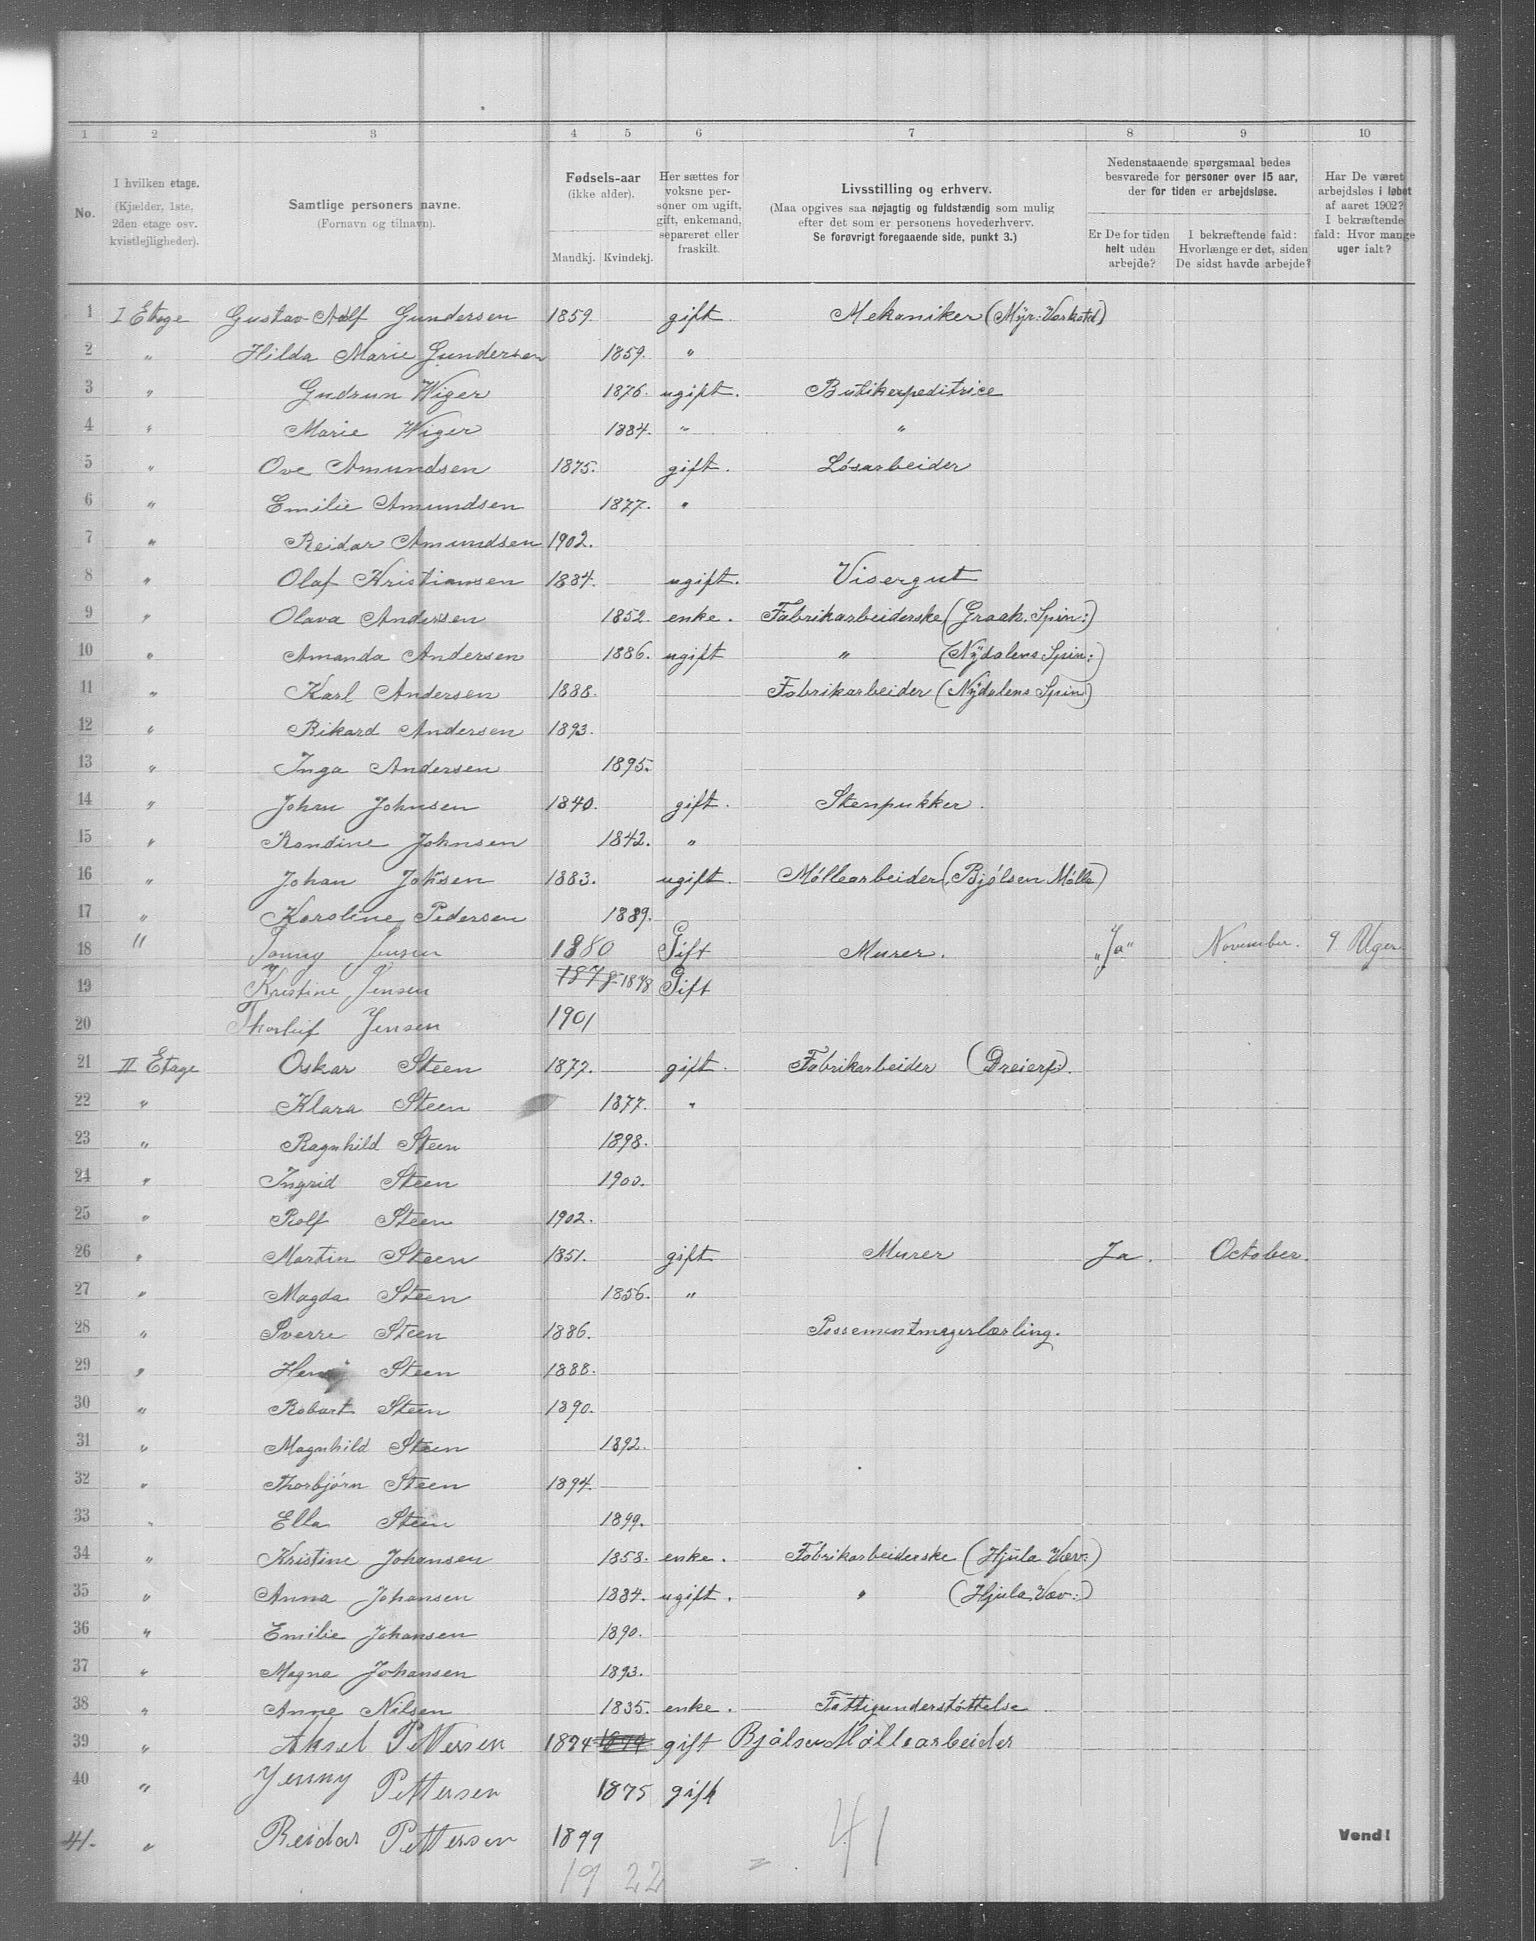 1 2 3 4 5 6 7 8 9 10
No.
I hvilken etage.
(Kjælder, 1ste,
2den etage osv.
kvistlejligheder).
Samtlige personers navne.
(Fornavn og tilnavn).
Fødsels-aar
(ikke alder).
Mandkj. Kvindekj.
Her sættes for
voksne per-
soner om ugift,
gift, enkemand,
separeret eller
fraskilt.
Livsstilling og erhverv.
(Maa opgives saa nøjagtig og fuldstændig som mulig
efter det som er personens hovederhverv.
Se forøvrigt foregaaende side, punkt 3.)
Nedenstaaende spørgsmaal bedes
besvarede for personer over 15 aar,
der for tiden er arbejdsløse.
Er De for tiden
helt uden
arbejde?
I bekræftende fald:
Hvorlænge er det, siden
De sidst havde arbejde?
Har De været
arbejdsløs i løbet
af aaret 1902?
I bekræftende
fald: Hvor mange
uger ialt?
1 I Etage Gustav Adolf Gundersen 1859. gift. Mekaniker (Myr: Værksted)
2 " Hilda Marie Gundersen 1859. "
3 " Gudrun Wiger 1876. ugift. Butikexpeditrice
4 " Marie Wiger 1884. " "
5 " Ove Amundsen 1875. gift. Løsarbeider
6 " Emilie Amundsen 1877. "
7 " Reidar Amundsen 1902.
8 " Olaf Kristiansen 1884. ugift. Visergut
9 " Olava Andersen 1852. enke. Fabrikarbeiderske (Graah. Spin:)
10 " Amanda Andersen 1886. ugift " (Nydalens Spin:)
11 " Karl Andersen 1888. Fabrikarbeider (Nydalens Spin)
12 " Rikard Andersen 1893.
13 " Inga Andersen 1895.
14 " Johan Johnsen 1840. gift. Stenpukker.
15 " Randine Johnsen 1842. "
16 " Johan Johsen 1883. ugift. Møllearbeider (Bjølsen Mølle)
17 " Karoline Pedersen 1889.
18 " Jonny Jensen 1880 Gift Murer. "Ja" November. 9 Uger
19 Kristine Jensen 1878 1878 Gift
20 Thorleif Jensen 1901
21 II Etage Oskar Steen 1872. gift. Fabrikarbeider (Dreierf.)
22 " Klara Steen 1877. "
23 " Ragnhild Steen 1898.
24 " Ingrid Steen 1900.
25 " Rolf Steen 1902.
26 " Martin Steen 1851. gift Murer Ja. October.
27 " Magda Steen 1856. "
28 " Sverre Steen 1886. Possementmagerlærling.
29 " Steen 1888.
30 " Robart Steen 1890.
31 " Magnhild Steen 1892.
32 " Thorbjørn Steen 1894.
33 " Ella Steen 1899.
34 " Kristine Johansen 1858. enke. Fabrikarbeiderske (Hjula Væv:)
35 " Anna Johansen 1884. ugift. " (Hjula Væv:)
36 " Emilie Johansen 1890.
37 " Magna Johansen 1893.
38 " Anne Nilsen 1835. enke. Fattigunderstøttelse
39 " Aksel Pettersen 1874 1874 gift Bjølsen Møllearbeider
40 " Jenny Pettersen 1875 gift
41. " Reidar Pettersen 1899
19 22 = . 41
Vend!